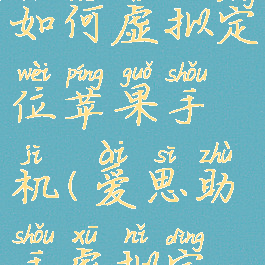 如何虚拟定
wèi píng guǒ shǒu
位苹果手
jī ài sī zhù
机(爱思助
shǒu xū nǐ dìng
手虚拟定